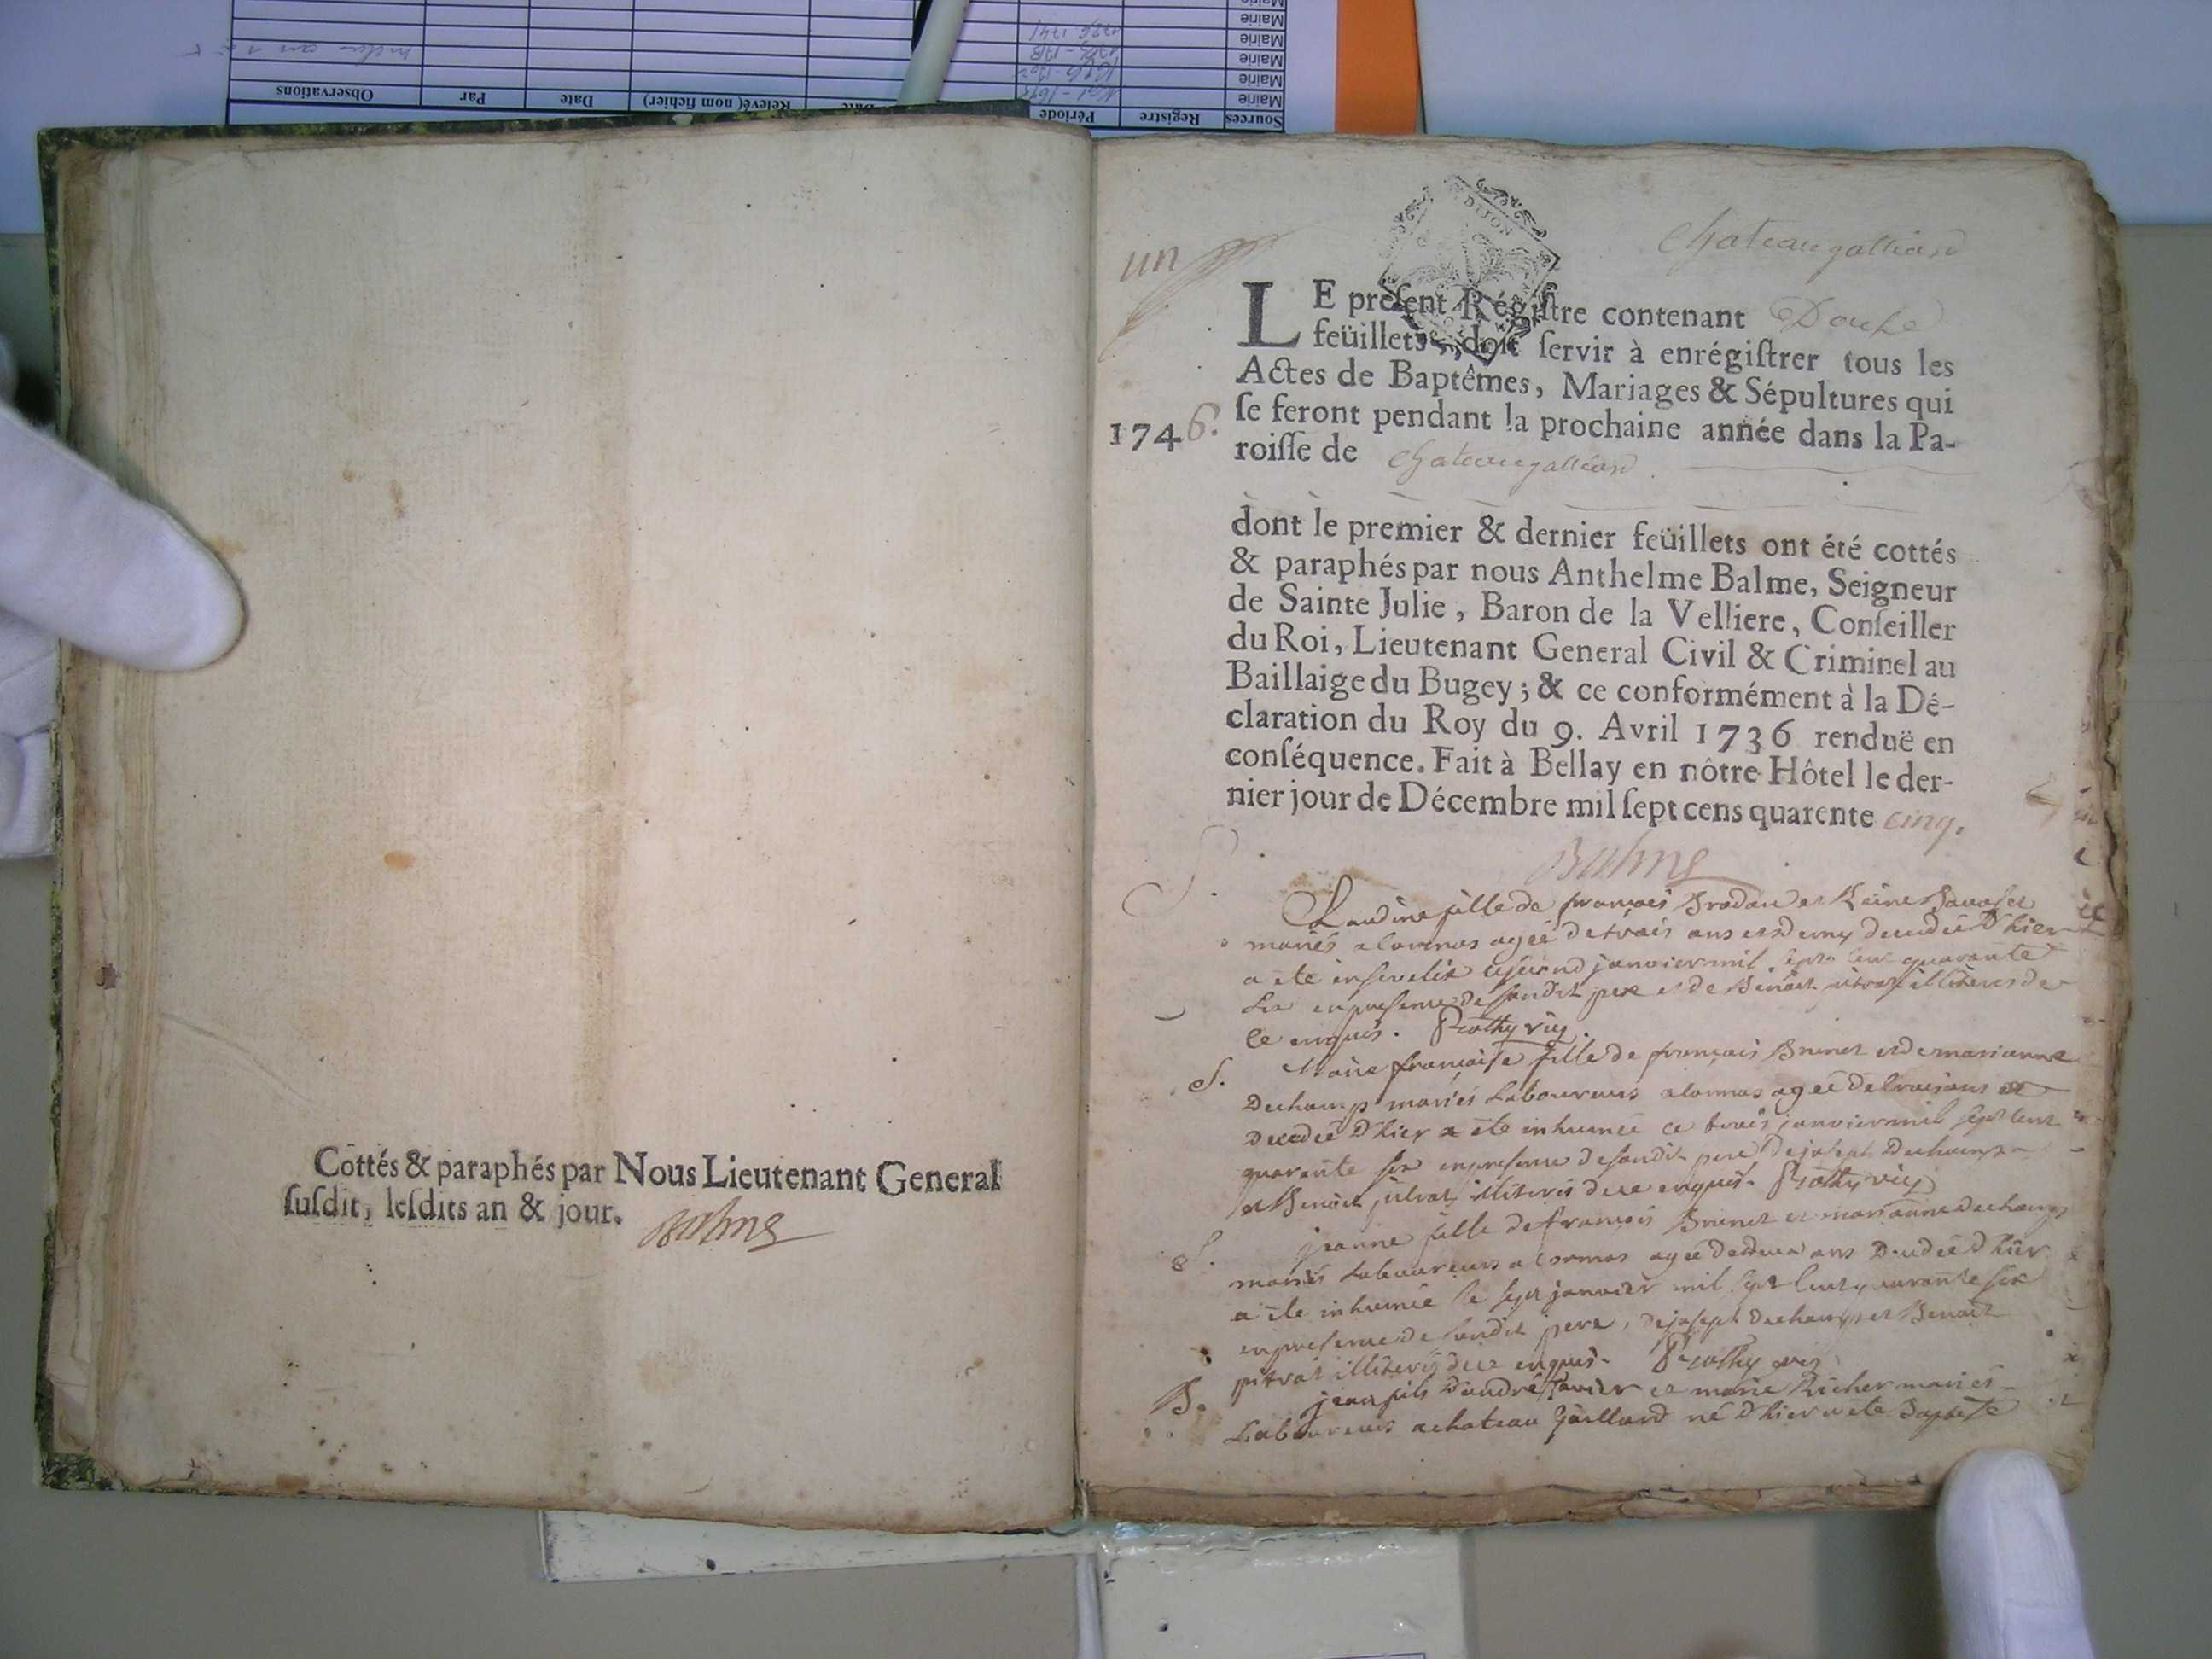 Sources Registre Période Date Relevé( nom fichier) Date Par Observations
Mairie
Mairie
Mairie
Mairie
Mairie
Cottés & paraphés par Nous Lieutenant General
ſuſdit, leſdits an & jour. Balme
DIJON
un
Chateaugalliard
LE preſent Régiſtre contenant Douze
feüillets, doit ſervir à enrégiſtrer tous les
Actes de Baptêmes, Mariages & Sépultures qui
ſe feront pendant la prochaine année dans la Pa-
1746.
roiſſe de Chateaugalliard.
dont le premier & dernier feüillets ont été cottés
& paraphés par nous Anthelme Balme, Seigneur
de Sainte Julie, Baron de la Velliere, Conſeiller
du Roi, Lieutenant General Civil & Criminel au
Baillaige du Bugey; & ce conformément à la Dé-
claration du Roy du 9. Avril 1736 renduë en
conſéquence. Fait à Bellay en nôtre Hôtel le der-
nier jour de Décembre mil ſept cens quarente cinq.
Balme
S.
fille de françois et Reine
mariés a Cormos agée de trois ans et demy decedée D'hier
a ete ensevelie janvier mil sept cent quarante
six en presence de sondit pere et de Benoit illiteres de
ce enquis. vic.
S. Marie françoise fille de françois Brunet et de marianne
Dechamp mariés Laboureurs a Cormos agée de trois ans et
decedée D'hier a ete inhumée ce trois janvier mil sept cent
quarante six en presence de sondit pere de joseph Dechamp
et Benoit illiteres de ce enquis. vic
S. jeanne fille de françois Brunet et marianne Dechamp
mariés Laboureurs a Cormos agée de deux ans Decedée D'hier
a ete inhumée le sept janvier mil sept cent quarante six
en presence de sondit pere, de joseph Dechamp et Benoit
pitrat illiteres de ce enquis. vic
B. jean fils D'andré et marie Richer mariés
Laboureurs a chateau Gaillard né D'hier a ete Baptisé